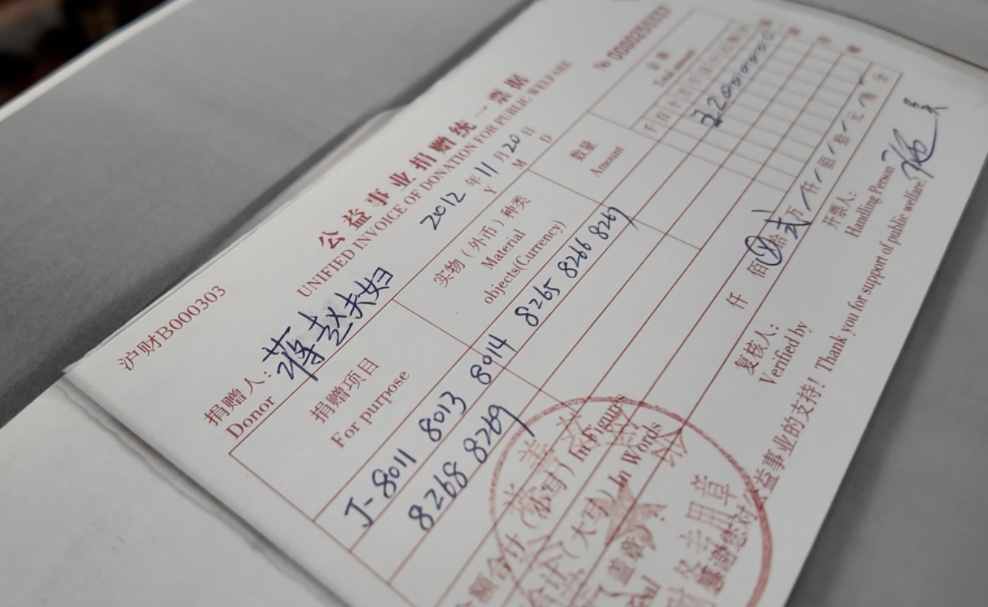 沪财B000303
公益事业捐赠统一票据
UNIFIED INVOICE OF DONATION FOR PUBLIC WELFARE
2012 年 11 月 20 日
Y M D
捐赠人：蒋赵夫妇
Donor
捐赠项目
For purpose
实物（外币）种类
Material
objects(Currency)
数量
Amount
金额
Total amount
千 百 十 万 千 百 十 元 角 分
J-8011 8013 8014 8265 8266 8267
8268 8269
金额合计（小写）In Figures
（大写）In Words
仟 佰 拾 贰 万 仟 佰 拾 元 角 分
复核人：
Verified by
开票人：
Handling Person
（盖章）
专用章
感谢您对公益事业的支持！Thank you for support of public welfare!